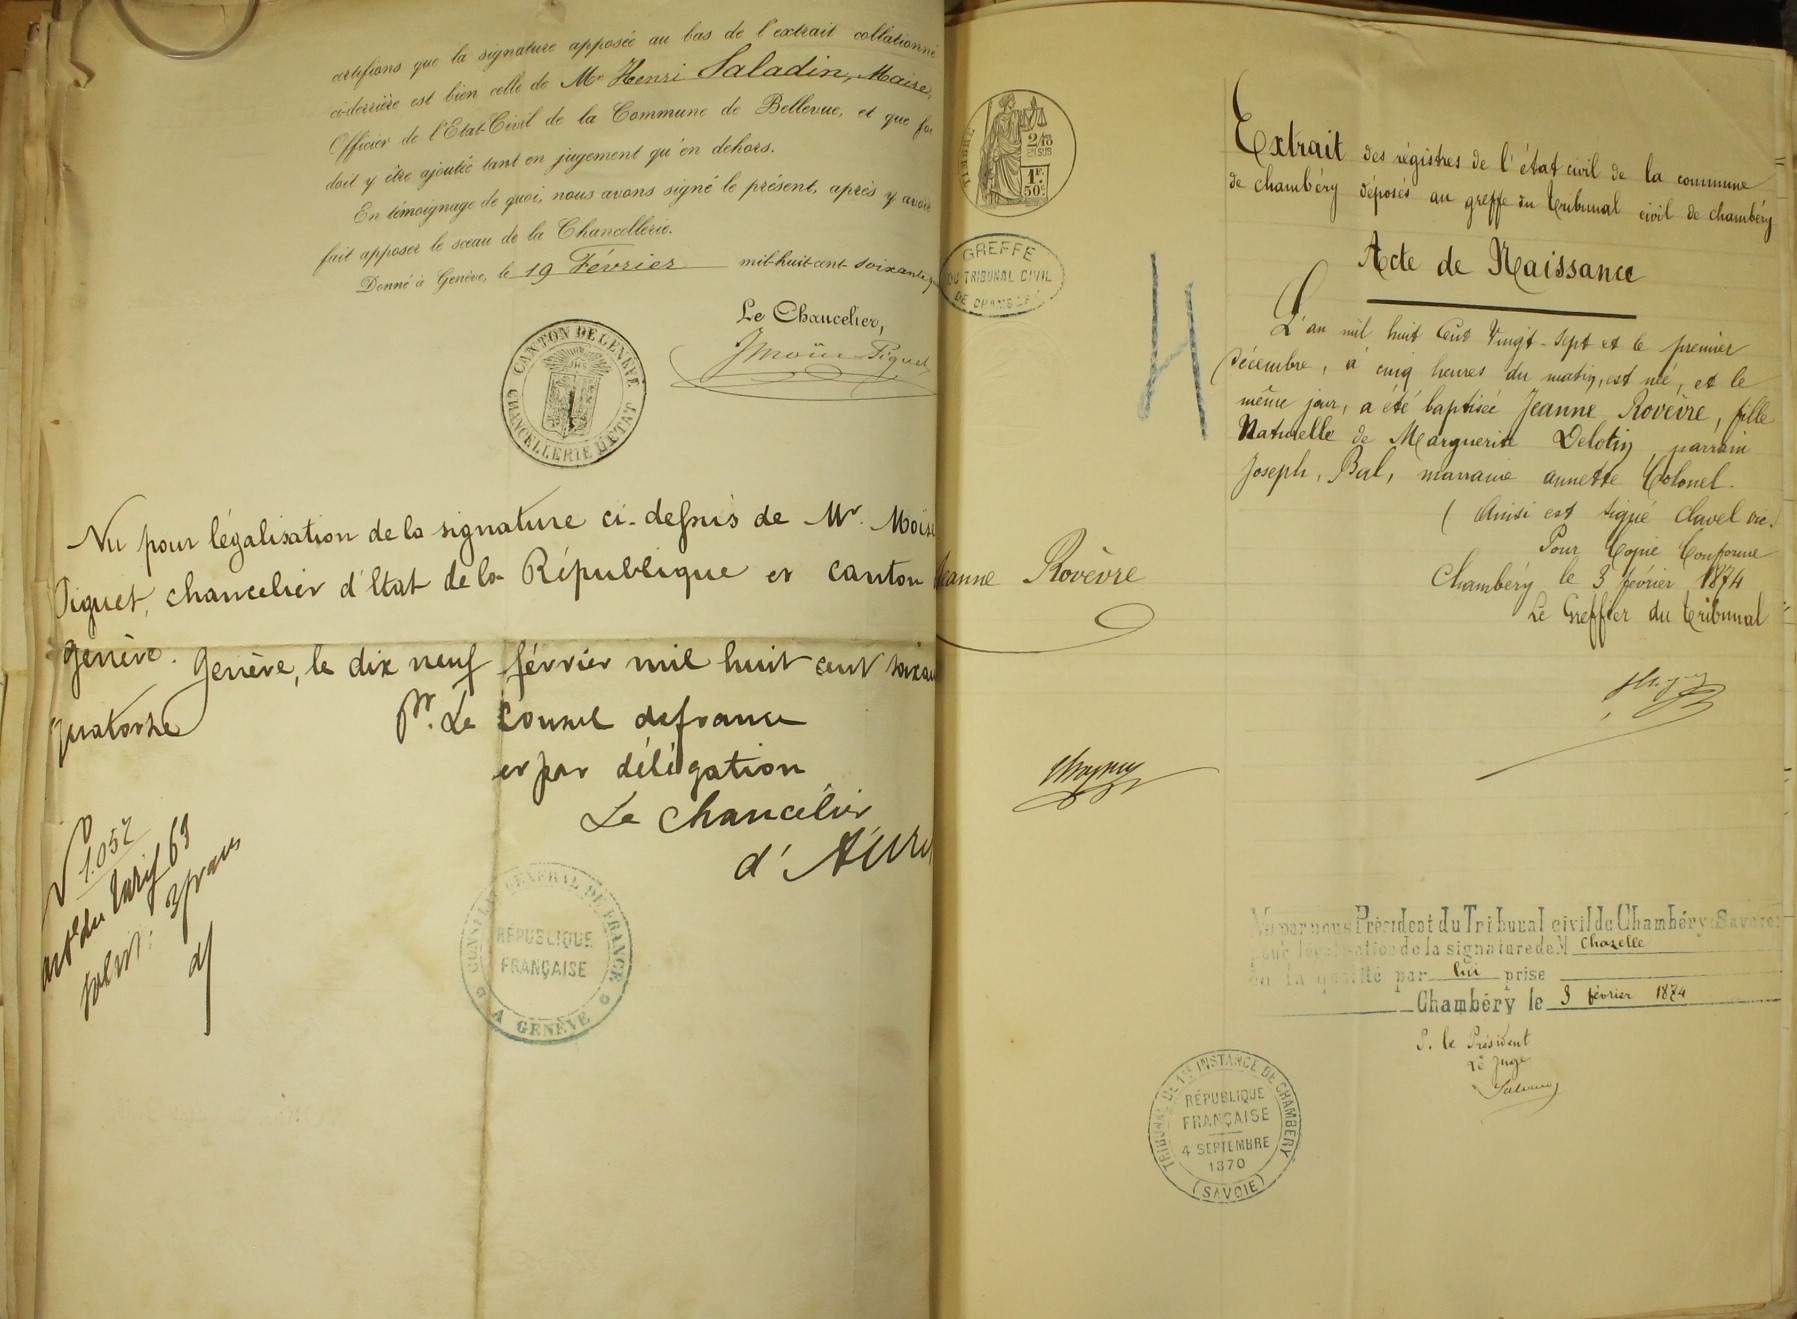 certifions que la signature apposée au bas de l'extrait collationné
ci-derrière est bien celle de Mr Henri Saladin, Maire,
Officier de l'Etat-Civil de la Commune de Bellevue, et que foi
doit y être ajoutée tant en jugement qu'en dehors.
En témoignage de quoi, nous avons signé le présent, après y avoir
fait apposer le sceau de la Chancellerie.
Donné à Genève, le 19 Février mil-huit-cent soixante
Le Chancelier,
Moïse Piguet
CANTON DE GENÈVE
CHANCELLERIE D'ETAT
Vu pour légalisation de la signature ci-dessus de Mr. Moïse
Piguet, chancelier d'Etat de la République et canton
Genève. Genève, le dix neuf février mil huit cent soixan
quatorze
Pr. Le Consul de france
et par délégation
Le Chancelier
N° 1.057
art. du tarif 63
3 francs
CONSULAT GÉNÉRAL DE FRANCE
RÉPUBLIQUE
FRANÇAISE
A GENÈVE
TIMBRE
2/10
EN SUS
1F.
50c.
GREFFE
DU TRIBUNAL CIVIL
DE CHAMBÉRY
Extrait des régistres de l'état civil de la commune
de chambéry déposés au greffe du tribunal civil de chambéry
Acte de Naissance
L'an mil huit Cent Vingt-sept et le premier
Décembre, à cinq heures du matin, est née, et le
même jour, a été baptisée Jeanne Rovèvre, fille
Naturelle de Marguerite Delotin, parrain
Joseph, Bal, marraine annette Colonel.
(Ainsi est signé Clavel vic.
Pour Copie Conforme
Chambéry le 3 février 1874
Le Greffier du tribunal
Jeanne Rovèvre
Vu par nous Président du Tribunal civil de Chambéry (Savoie)
pour légalisation de la signature de M Chazelle
en la qualité par lui prise
Chambéry le 3 février 1874
P. le Président
Le Juge
TRIBUNAL DE 1RE INSTANCE DE CHAMBÉRY
RÉPUBLIQUE
FRANÇAISE
4 SEPTEMBRE
1870
(SAVOIE)